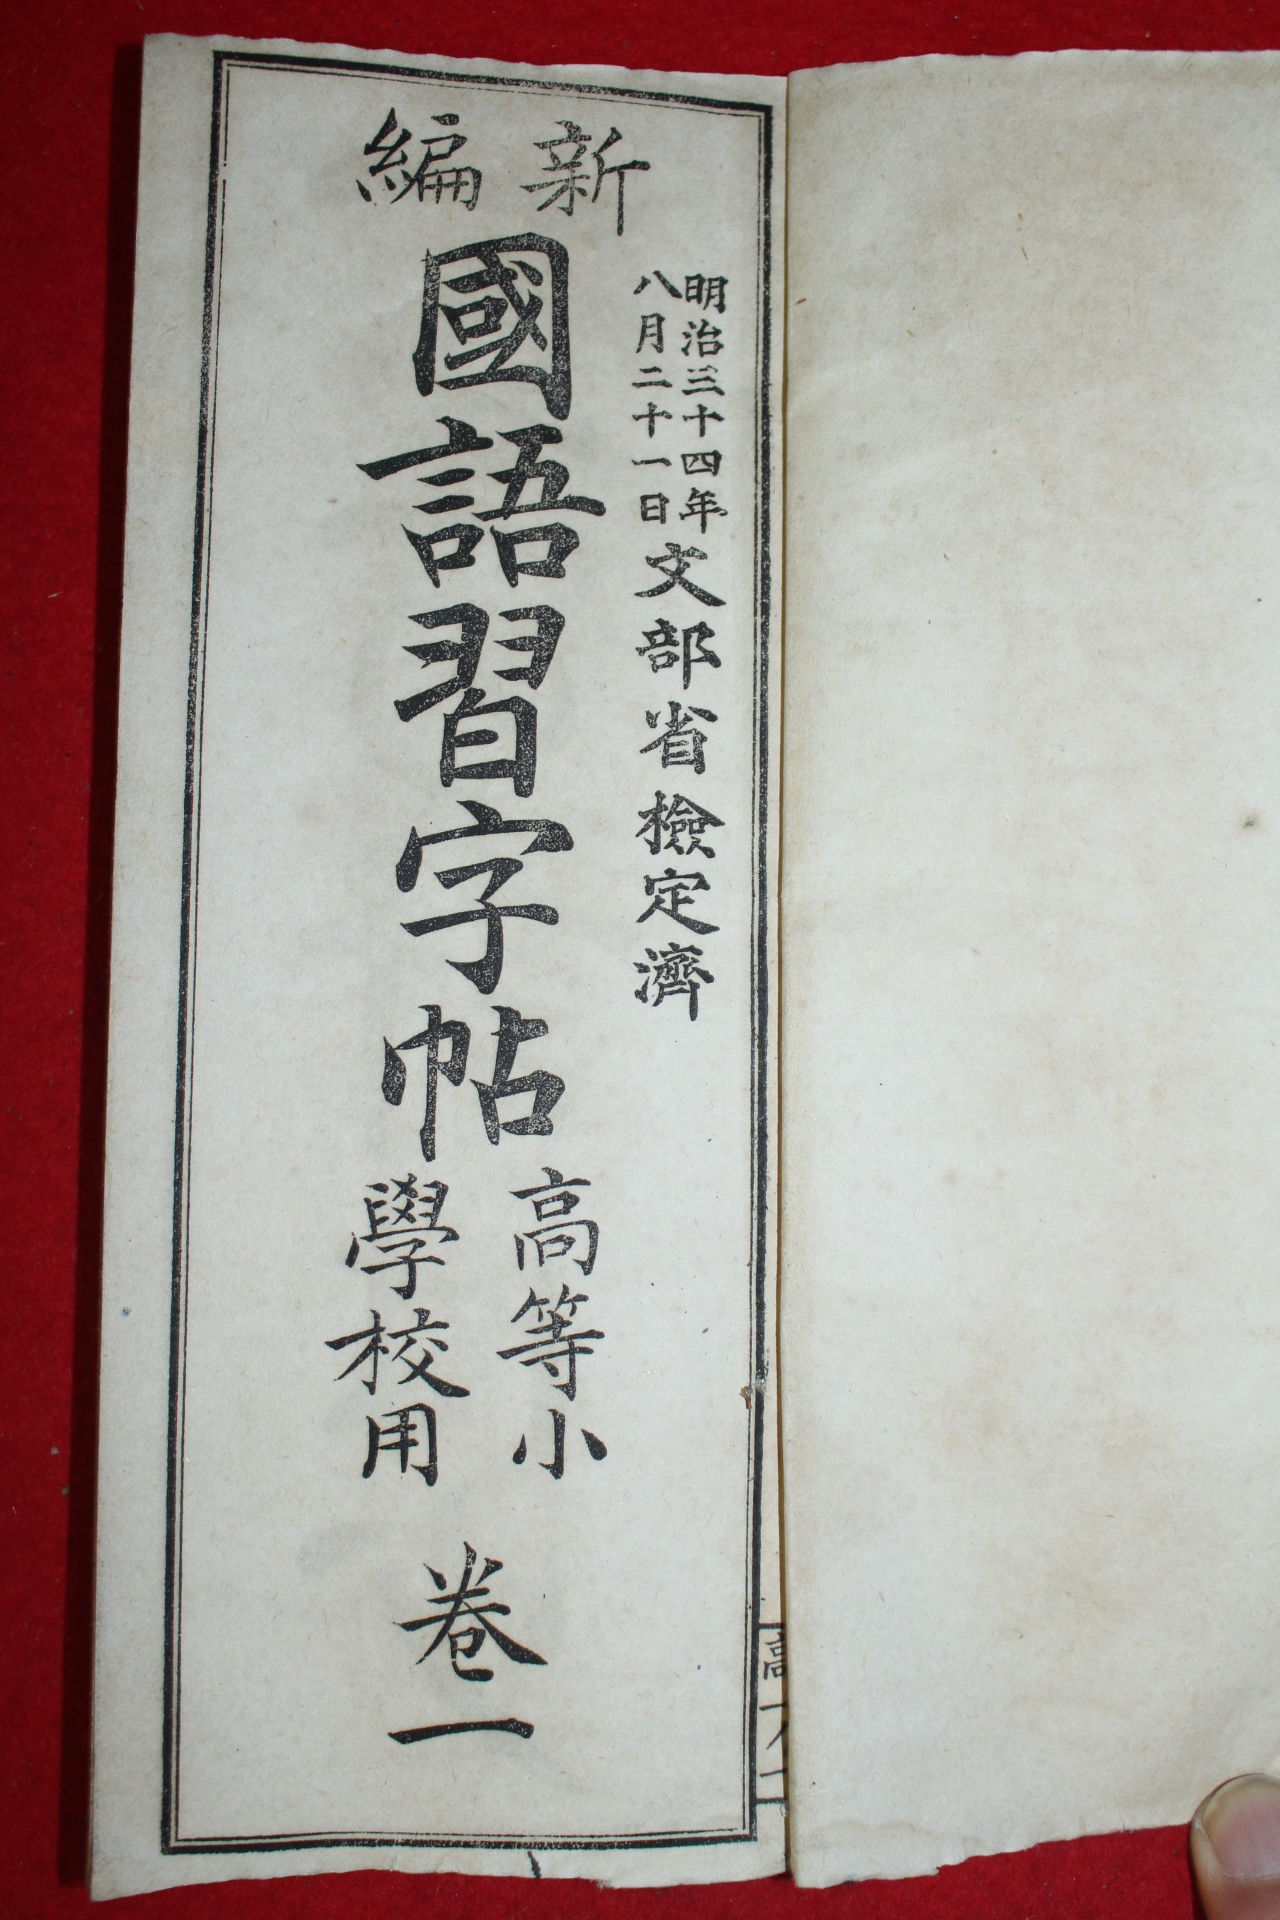 明治三十四年
八月二十一日
文部省檢定濟
新編
國語習字帖
高等小
學校用
卷一
高